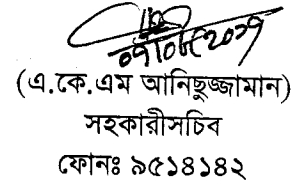 (এ.কে.এম আনিছুজ্জামান)
সহকারীসচিব
ফোনঃ ৯৫১৪১৪২